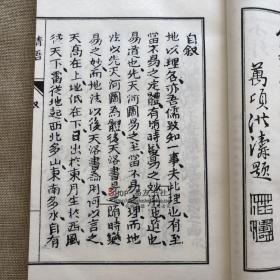 萬頃洪濤題
自叙
地以理名亦吾儒致知一事夫此理也有至
當不易之定體有隨時變易之妙也
易道也先天河圖易之至當不易之妙而地
法以先天河圖為體後天洛書易之隨時變
易之妙而地法以後天洛書為用何以言之
天高在上地低在下日出於東月生於西風
往天下雷從地起西北多山東南多水自有
叙